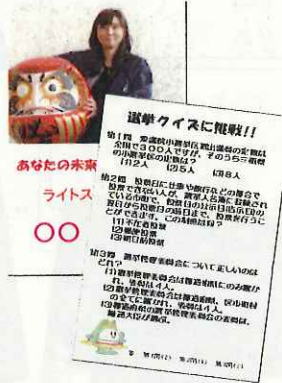 あなたの未来
ライトス
○○
選挙クイズに挑戦!!
第1問 衆議院小選挙区選出議員の定数は
全国で300人ですが、そのうち三重県
の小選挙区の定数は?
(1)2人 (2)5人 (3)8人
第2問 投票日に仕事や旅行などの都合で
投票できない人が、選挙人名簿に登録され
ている市町で、投票日の公示日(告示日)の
翌日から投票日の前日まで、投票を行うこ
とができます。この制度は何?
(1)不在者投票
(2)郵便投票
(3)期日前投票
第3問 選挙管理委員会について正しいのは
どれ?
(1)選挙管理委員会は都道府県にのみ置か
れ、委員は4人。
(2)選挙管理委員会は都道府県、区市町村
の全てに置かれ、委員は4人。
(3)都道府県の選挙管理委員会の委員は、
総理大臣が選ぶ。